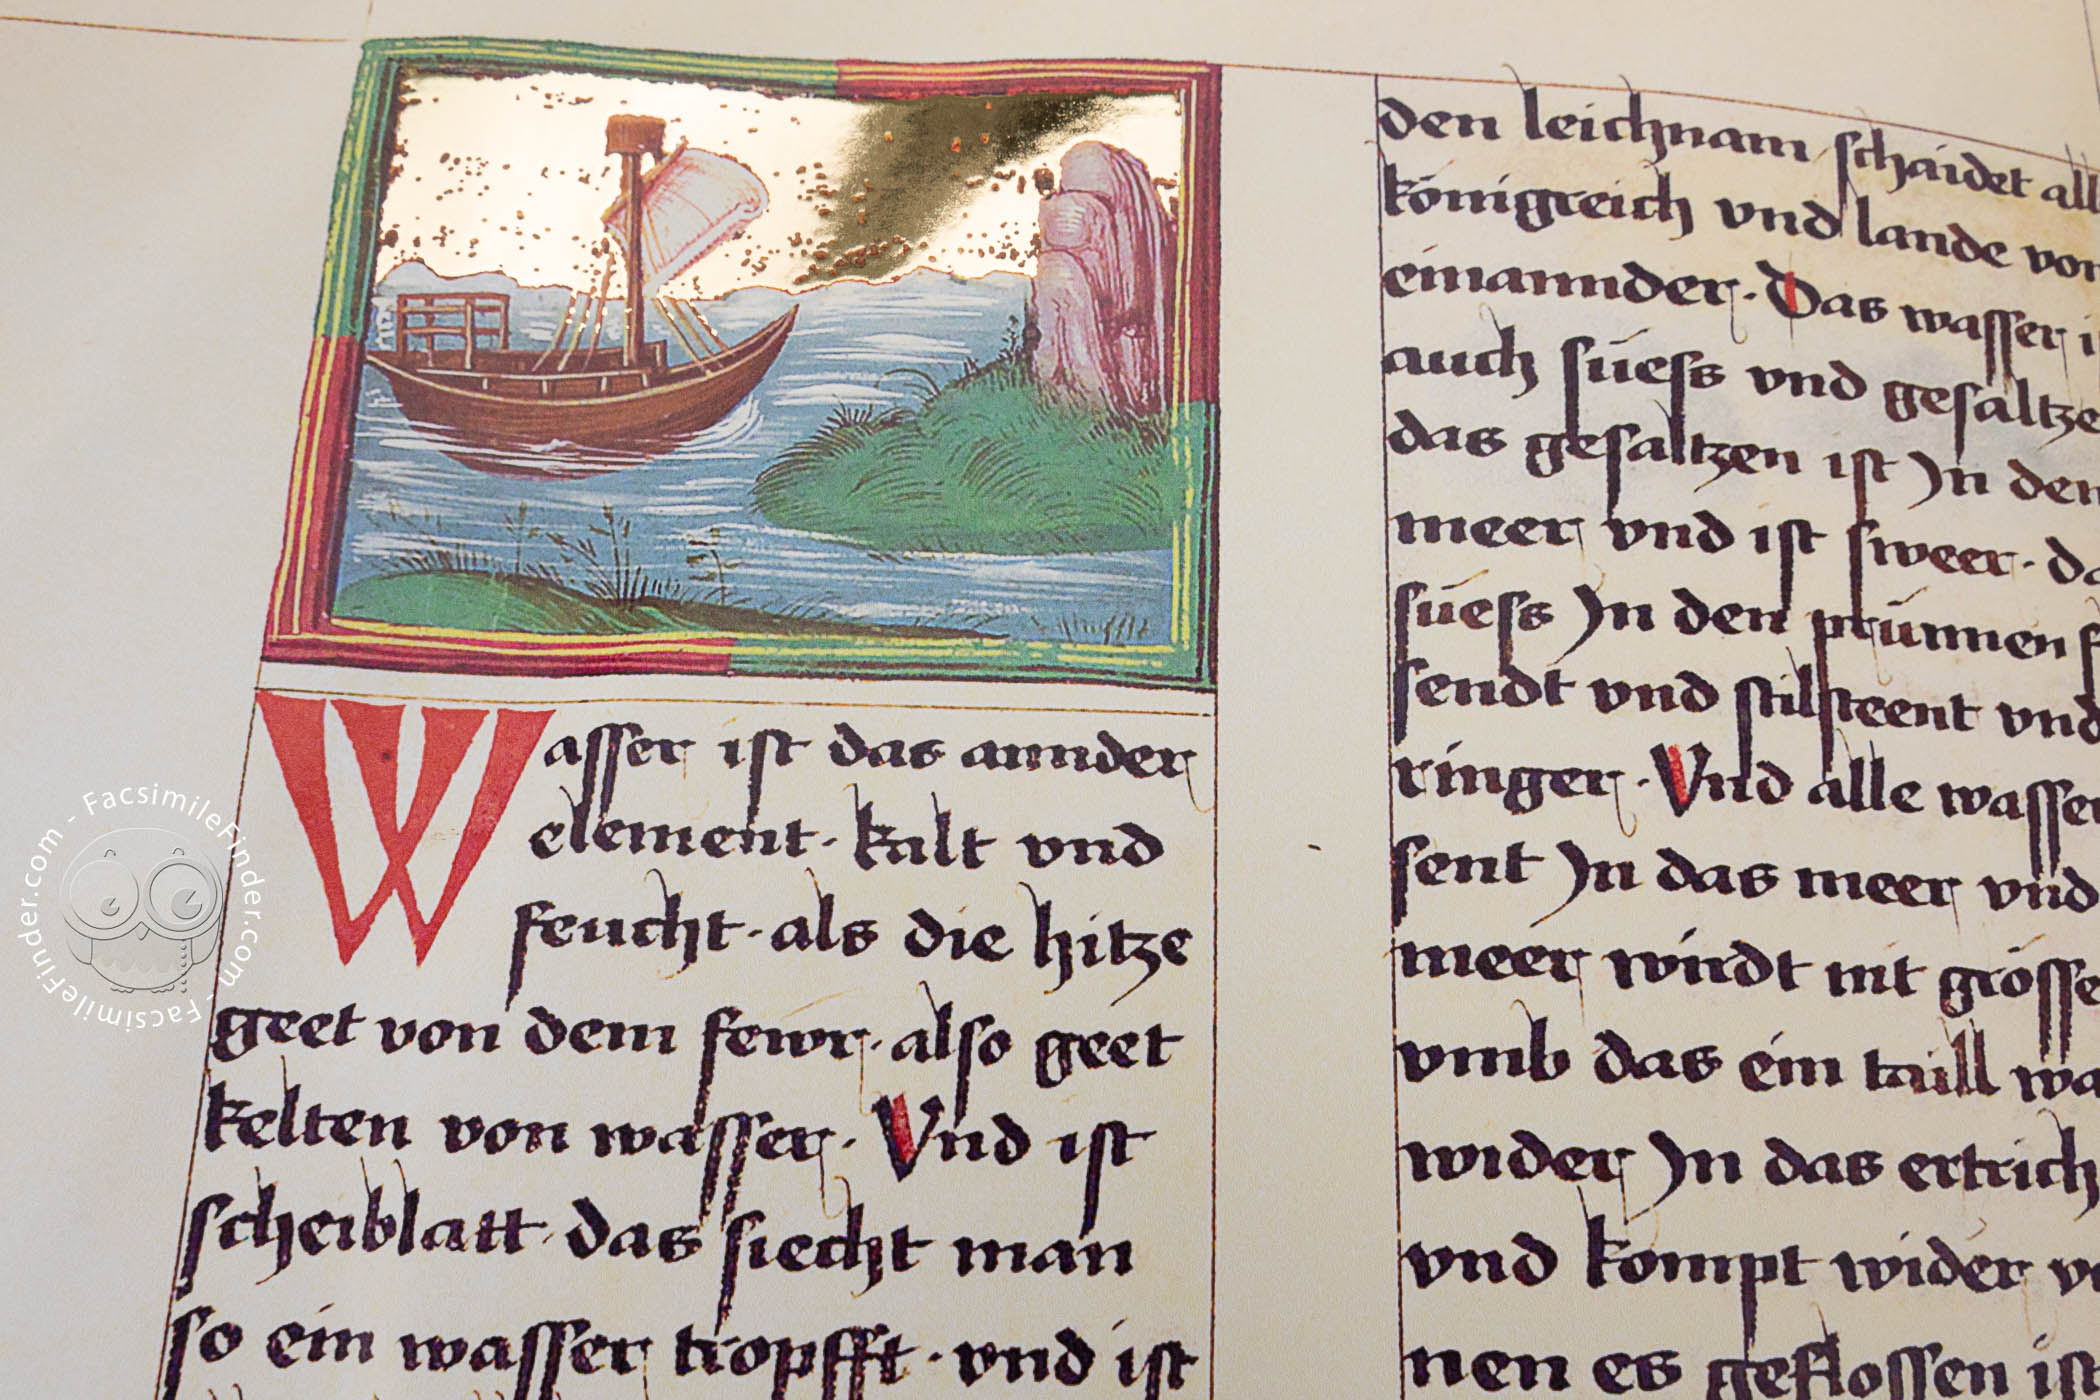 Wasser ist das annder
element. kalt vnd
feucht. als die hitze
geet von dem fewr. also geet
kelten von wasser. Vnd ist
scheiblatt. das siecht man
so ein wasser tropfft. vnd ist
den leichnam schaidet all
königreich vnd lande von
einannder. Das wasser i
auch süess vnd gesaltze
das gesaltzen ist In dem
meer vnd ist swer. da
süess In den prünnen f
sendt vnd stilsteent vnd
ringer. Vnd alle wasser
sent In das meer vnd
meer wirdt nit grösse
vmb das ein taill wa
wider In das ertrich
vnd kompt wider vo
nen es geflossen ist
FacsimileFinder.com - FacsimileFinder.com -